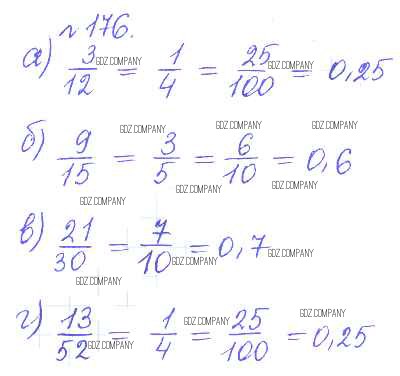 № 176.
а) 3/12 = 1/4 = 25/100 = 0,25
GDZ.COMPANY GDZ.COMPANY
б) 9/15 = 3/5 = 6/10 = 0,6
GDZ.COMPANY GDZ.COMPANY GDZ.COMPANY
GDZ.COMPANY GDZ.COMPANY
GDZ.COMPANY
в) 21/30 = 7/10 = 0,7
GDZ.COMPANY GDZ.COMPANY
GDZ.COMPANY
г) 13/52 = 1/4 = 25/100 = 0,25
GDZ.COMPANY GDZ.COMPANY
GDZ.COMPANY